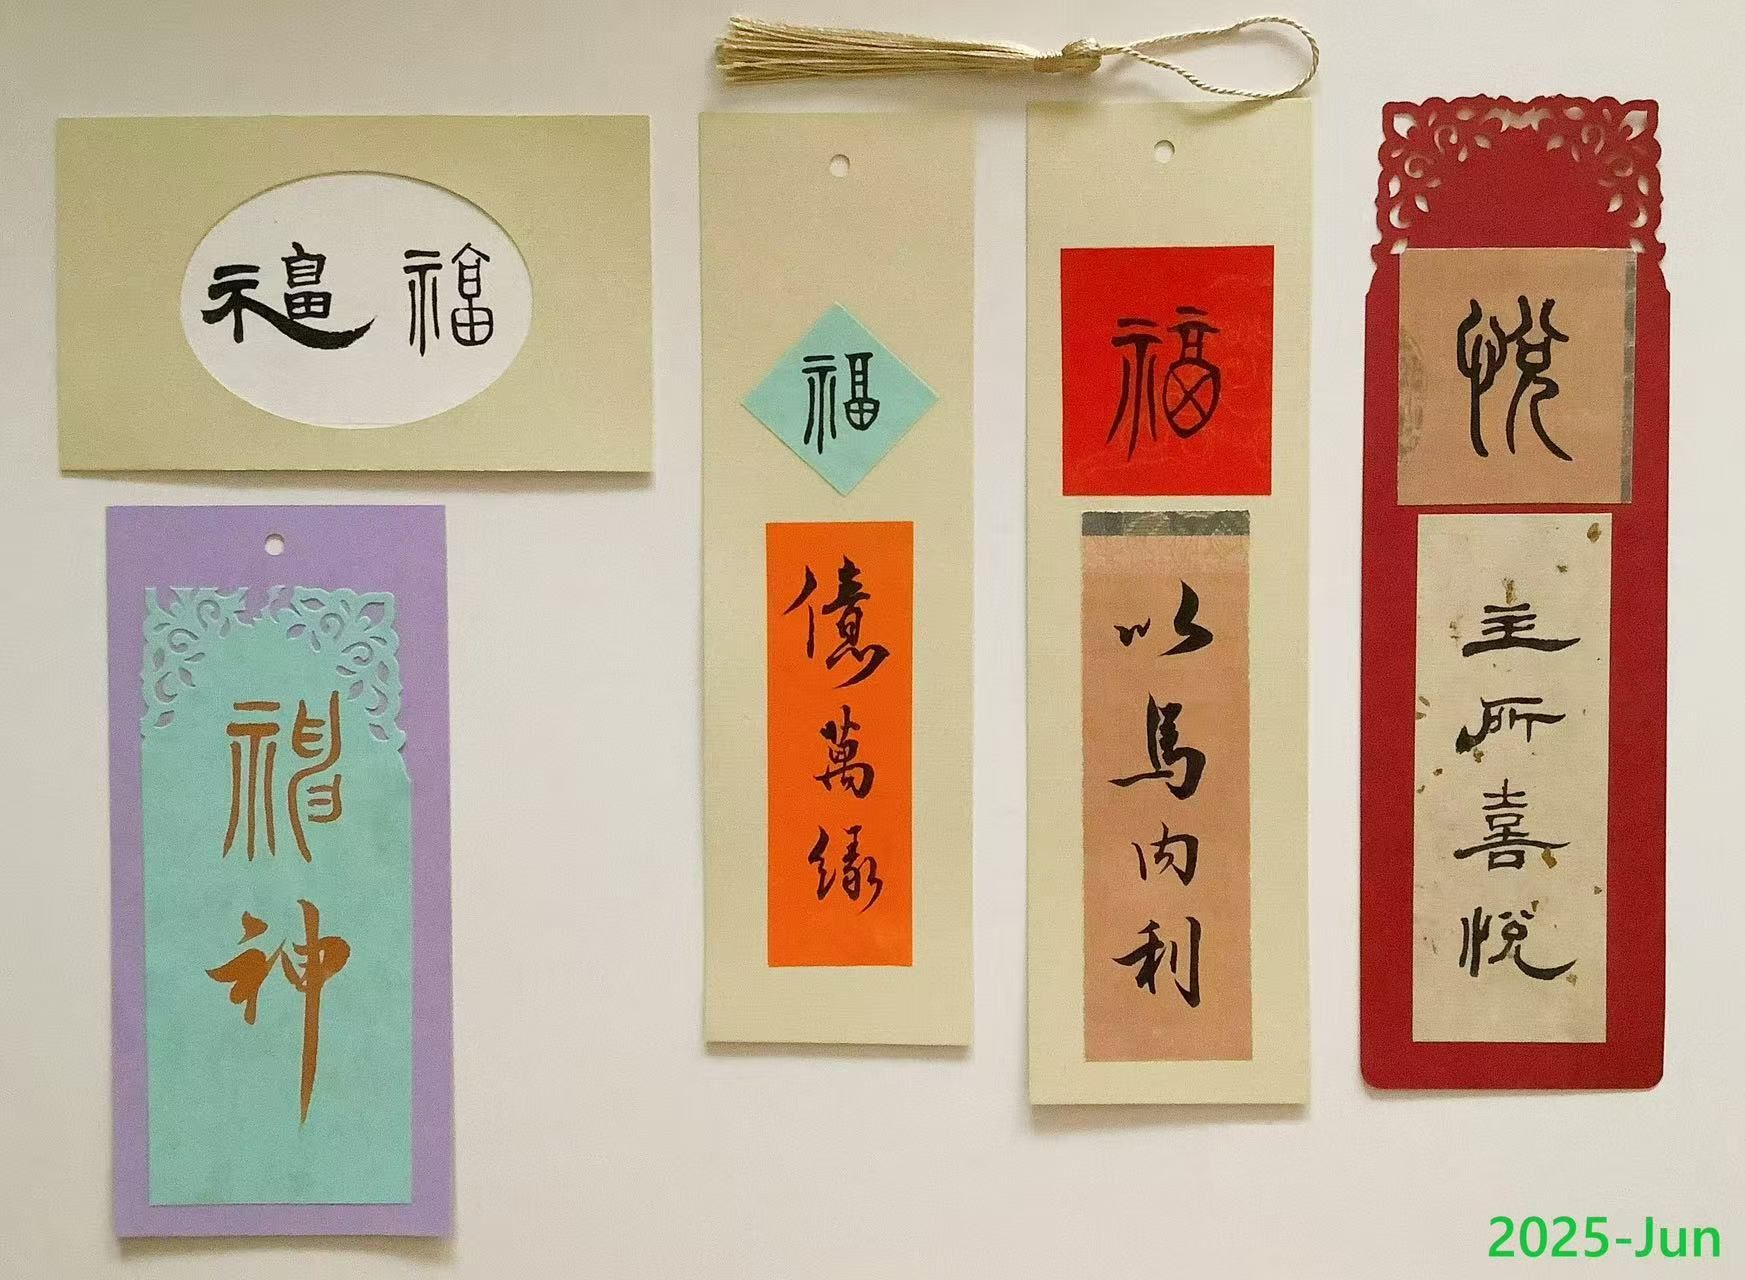 福 福
神
神
福
億萬緣
福
以馬內利
悅
主所喜悅
2025-Jun